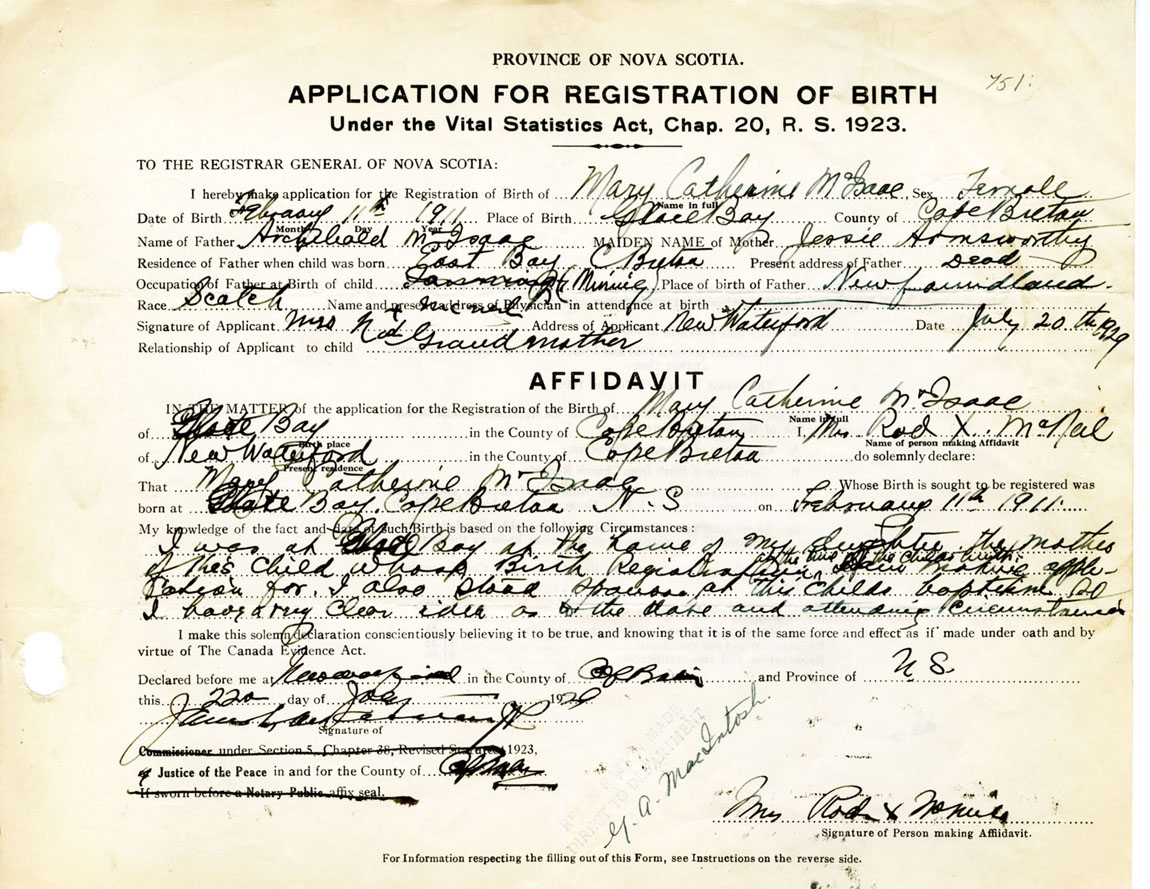 751.
PROVINCE OF NOVA SCOTIA.
APPLICATION FOR REGISTRATION OF BIRTH
Under the Vital Statistics Act, Chap. 20, R. S. 1923.
TO THE REGISTRAR GENERAL OF NOVA SCOTIA:
I hereby make application for the Registration of Birth of Mary Catherine McIsaac, Sex Female
Name in full
Date of Birth February 11th 1911 Place of Birth Glace Bay County of Cape Breton
Month Day Year
Name of Father Archibald McIsaac MAIDEN NAME of Mother Jessie
Residence of Father when child was born East Bay C Breton Present address of Father Dead
Occupation of Father at Birth of child Farming & Mining Place of birth of Father Newfoundland.
Race Scotch Name and present address of Physician in attendance at birth
Signature of Applicant Mrs Rod McNeil Address of Applicant New Waterford Date July 20th 1929
Relationship of Applicant to child Grandmother
AFFIDAVIT
IN THE MATTER of the application for the Registration of the Birth of Mary Catherine McIsaac
Name in full
of Glace Bay in the County of Cape Breton I, Mrs Rod X McNeil
Birth place Name of person making Affidavit
of New Waterford in the County of Cape Breton do solemnly declare:
Present residence
That Mary Catherine McIsaac Whose Birth is sought to be registered was
born at Glace Bay, Cape Breton N.S on February 11th 1911.
My knowledge of the fact and date of such Birth is based on the following Circumstances:
I was at Glace Bay at the home of my daughter the mother
at the time of the childs birth.
of the child whose Birth Registration is making appli-
cation for. I also stood sponsor at this childs baptism so
I have a very clear idea as to the date and attending circumstances
I make this solemn declaration conscientiously believing it to be true, and knowing that it is of the same force and effect as if made under oath and by
virtue of The Canada Evidence Act.
Declared before me at New Waterford in the County of C Breton and Province of N S
this 22nd day of July 1929
Signature of
Commissioner under Section 5, Chapter 38, Revised Statutes 1923,
Justice of the Peace in and for the County of
If sworn before a Notary Public affix seal.
MacIntosh
Mrs Rod X McNeil
Signature of Person making Affidavit.
For Information respecting the filling out of this Form, see Instructions on the reverse side.